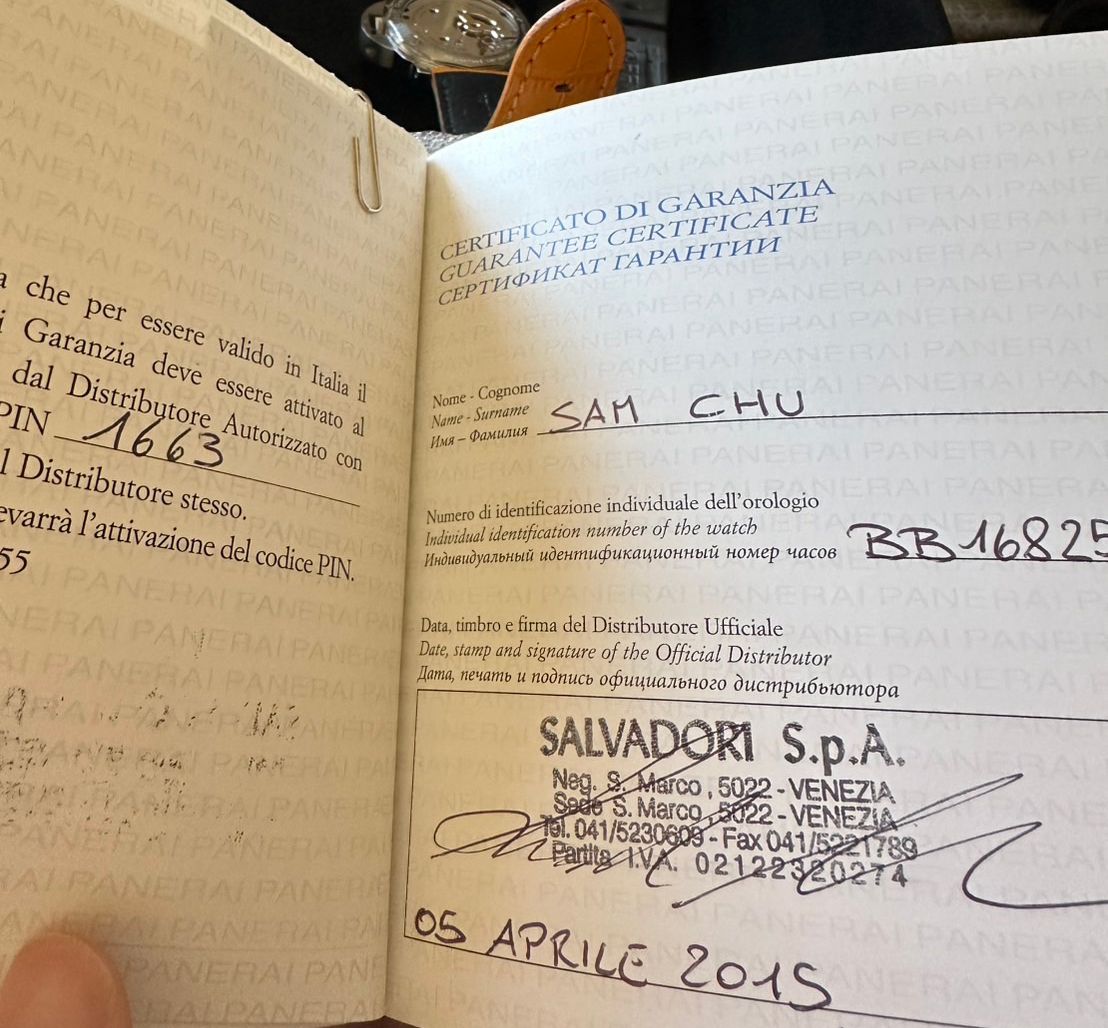 a che per essere valido in Italia il
i Garanzia deve essere attivato al
dal Distributore Autorizzato con
PIN 1663
l Distributore stesso.
evarrà l'attivazione del codice PIN.
55
CERTIFICATO DI GARANZIA
GUARANTEE CERTIFICATE
СЕРТИФИКАТ ГАРАНТИИ
Nome - Cognome
Name - Surname
Имя – Фамилия
SAM CHU
Numero di identificazione individuale dell'orologio
Individual identification number of the watch
Индивидуальный идентификационный номер часов
BB16825
Data, timbro e firma del Distributore Ufficiale
Date, stamp and signature of the Official Distributor
Дата, печать и подпись официального дистрибьютора
SALVADORI S.p.A.
Neg. S. Marco , 5022 - VENEZIA
Sede S. Marco , 5022 - VENEZIA
Tel. 041/5230609 - Fax 041/5221789
Partita I.V.A. 02122320274
05 APRILE 2015